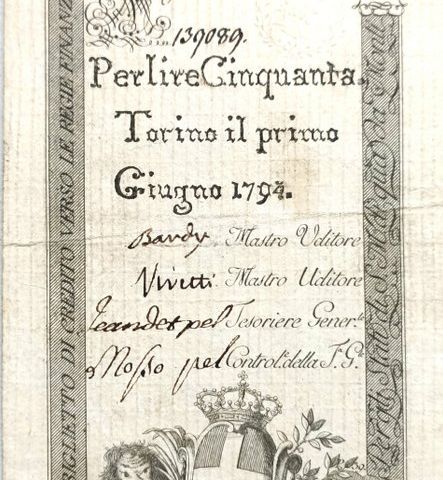 139089.
Per lire Cinquanta.
Torino il primo
Giugno 1794.
Bardy. Mastro Uditore
Vivetti. Mastro Uditore
Jeandet pel Tesoriere Gener.le
Mosso pel Control.e della T. G.le
BIGLIETTO DI CREDITO VERSO LE REGIE FINANZ
per gli Stati di S. M. di qua da' Monti